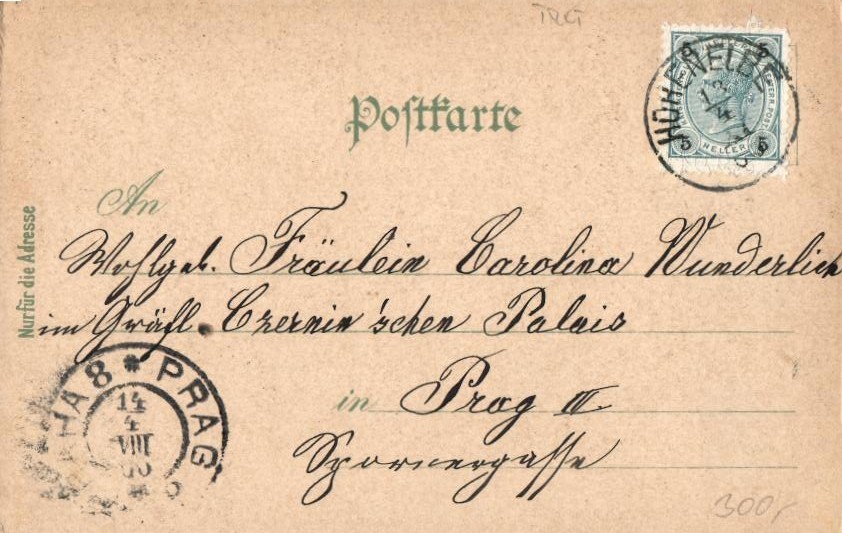 TRG
HOHENELBE
13/4
5 5
HELLER
5 5
Postkarte
An
Nur für die Adresse
Wohlgeb. Fräulein Carolina Wunderlich
im Gräfl. Czernin'schen Palais
in Prag III
Spornergasse
PRAHA 8 * PRAG
14
4
VIII
00
300,-